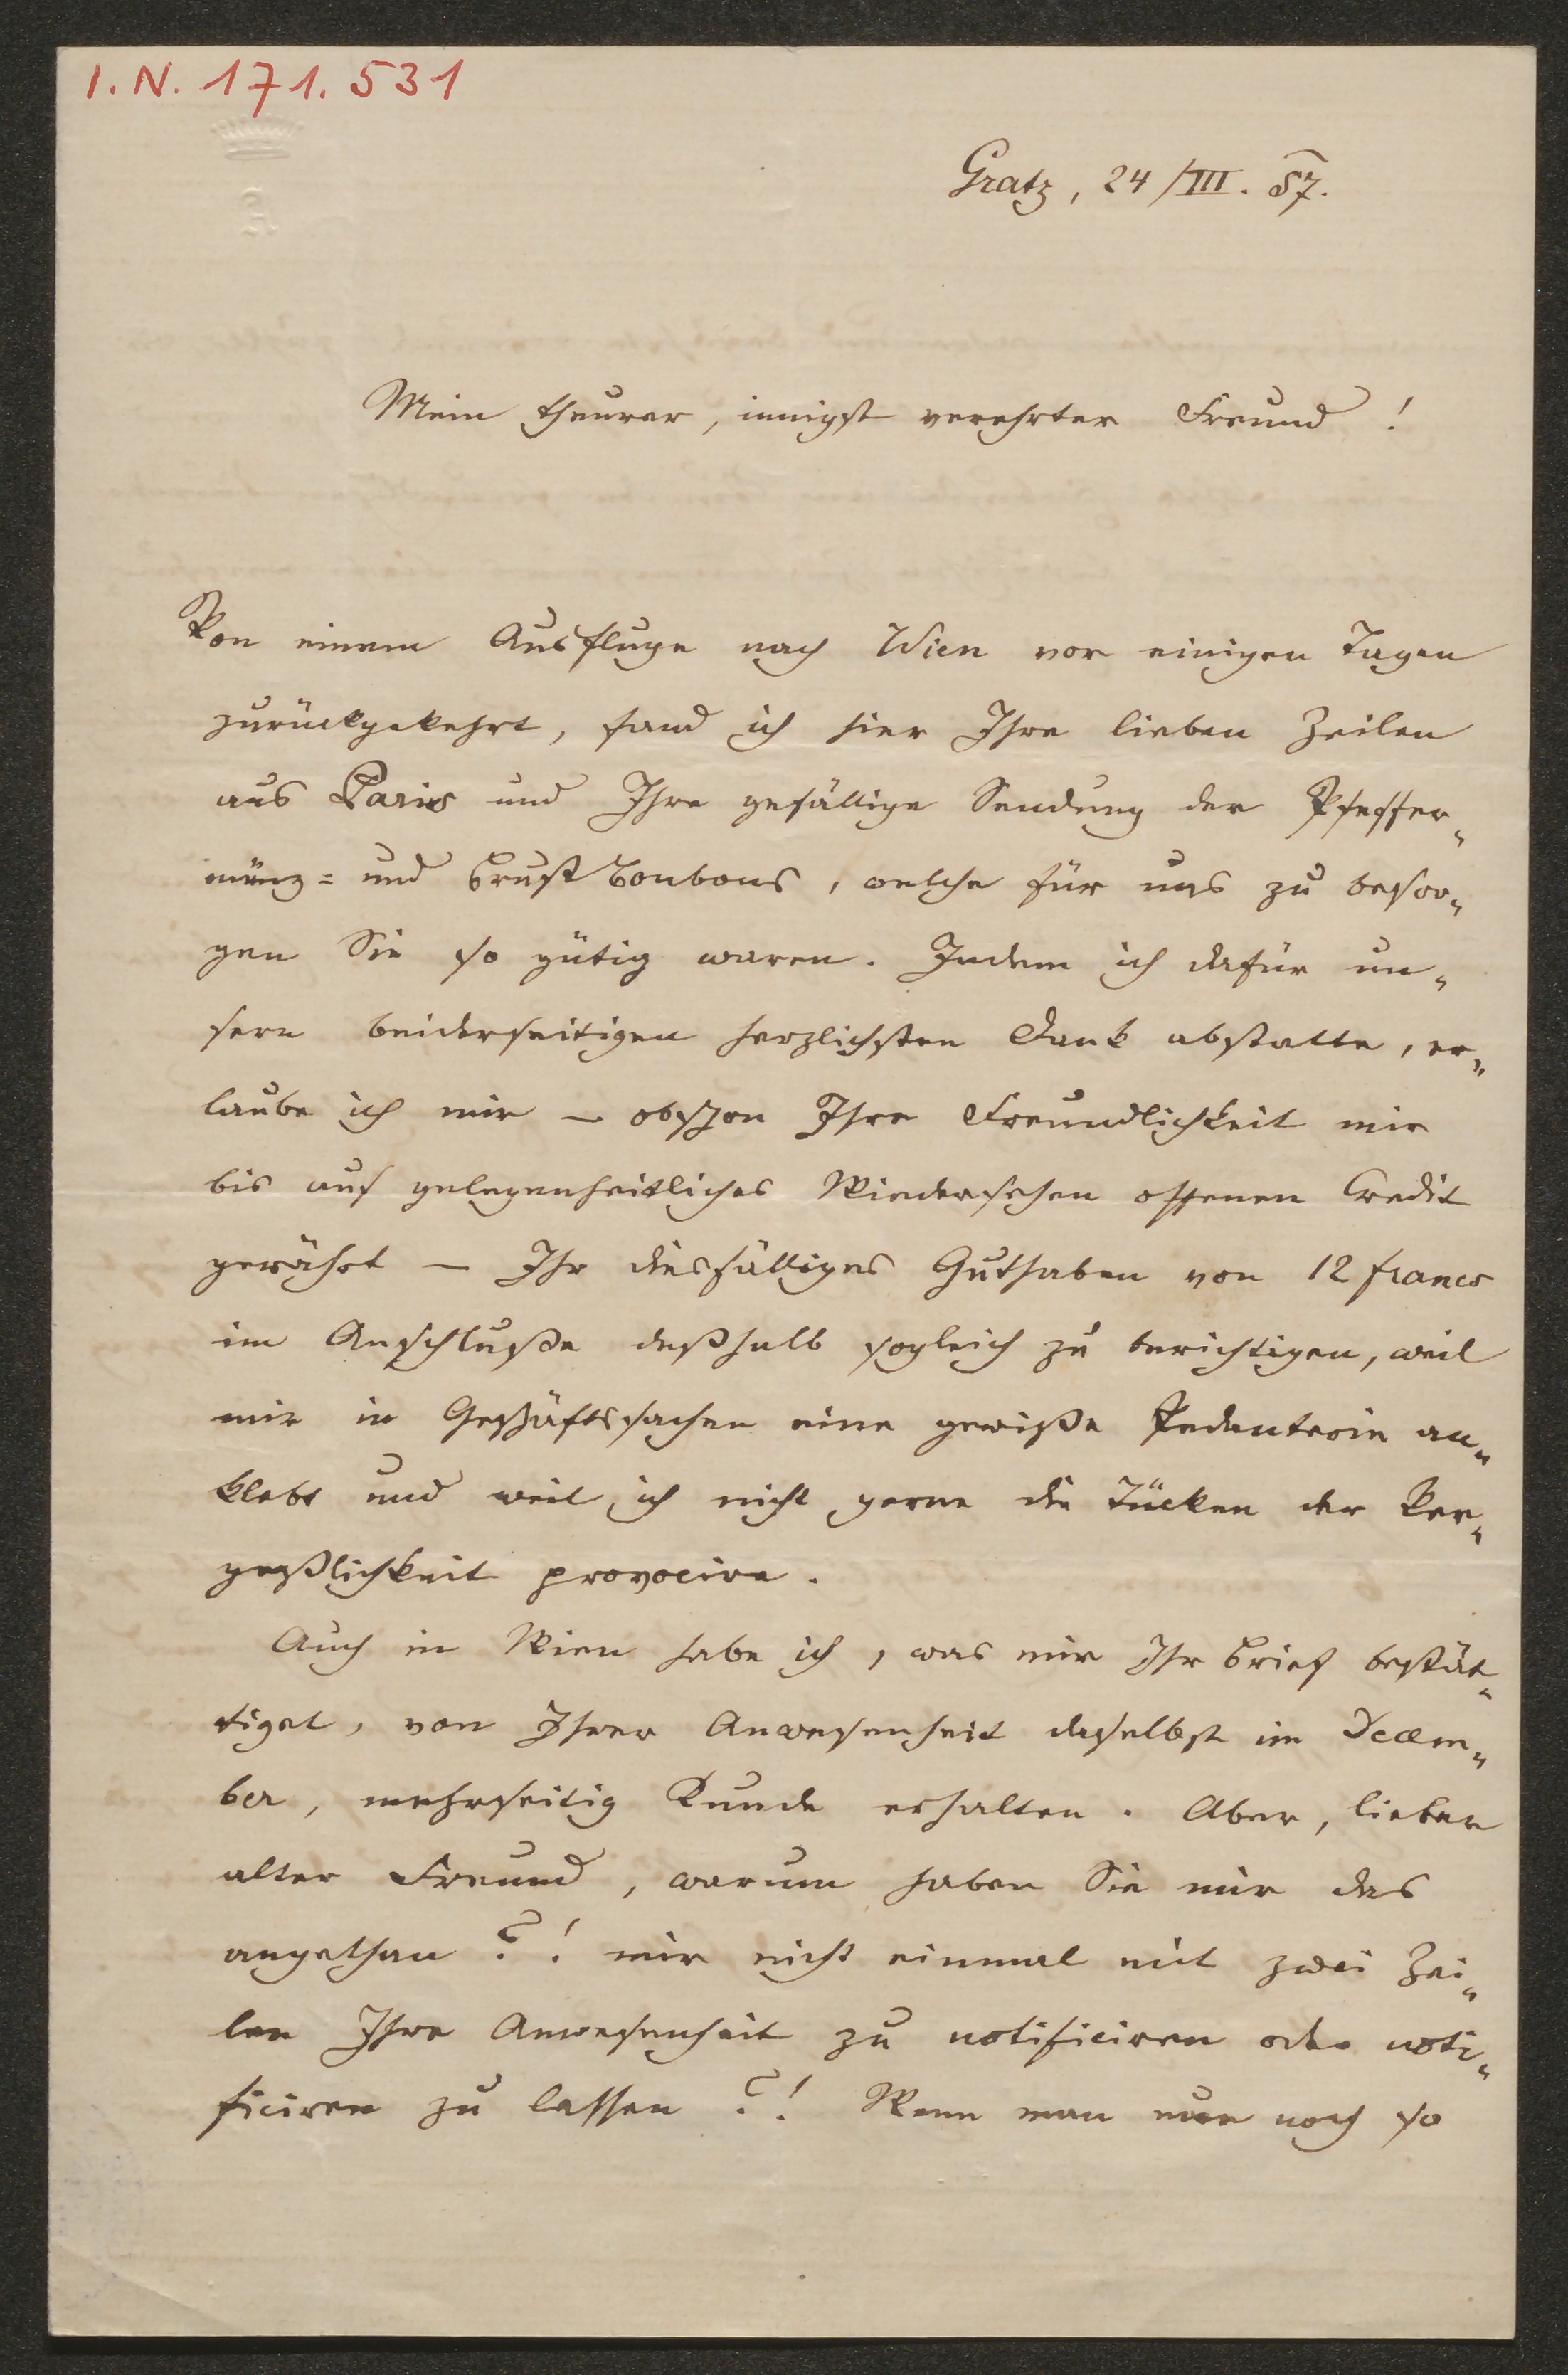 I. N. 171.531
Gratz, 24/III. 57.
Mein theurer, innigst verehrter Freund !
Von einem Ausfluge nach Wien vor einigen Tagen
zurückgekehrt, fand ich hier Ihre lieben Zeilen
aus Paris und Ihre gefällige Sendung der Pfeffer„
münz= und Brust Bonbons, welche für uns zu besor„
gen Sie so gütig waren. Indem ich dafür un„
sern beiderseitigen herzlichsten Dank abstatte, er„
laube ich mir — obschon Ihre Freundlichkeit mir
bis auf gelegenheitliches Wiedersehen offenen Credit
gewährt — Ihr diesfälliges Guthaben von 12 francs
im Anschluße deßhalb sogleich zu berichtigen, weil
mir in Geschäftssachen eine gewiße Pedanterie an„
klebt und weil ich nicht gerne die Tücken der Ver„
geßlichkeit provocire.
Auch in Wien habe ich, was mir Ihr Brief bestät„
tiget, von Ihrer Anwesenheit daselbst im Decem„
ber, mehrseitig Kunde erhalten. Aber, lieber
alter Freund, warum haben Sie mir das
angethan ?! mir nicht einmal mit zwei Zei„
len Ihre Anwesenheit zu notificiren oder noti„
ficiren zu lassen ?! Wenn man nur noch so